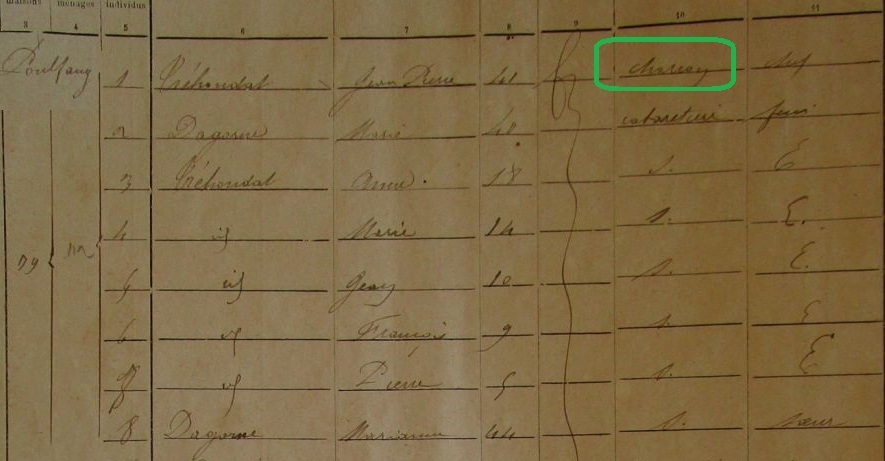 maisons ménages individus
3 4 5 6 7 8 9 10 11
Poulfang 1 Tréhondat Jean Pierre chef
2 Dagorne Marie 48 cabaretière femme
3 Tréhondat Anne 18 s. E
4 id Marie 14 s. E.
79 5 id Jean 10 s. E.
6 id François 9 s. E
7 id Pierre 5 s. E
8 Dagorne Marianne 44 s. sœur